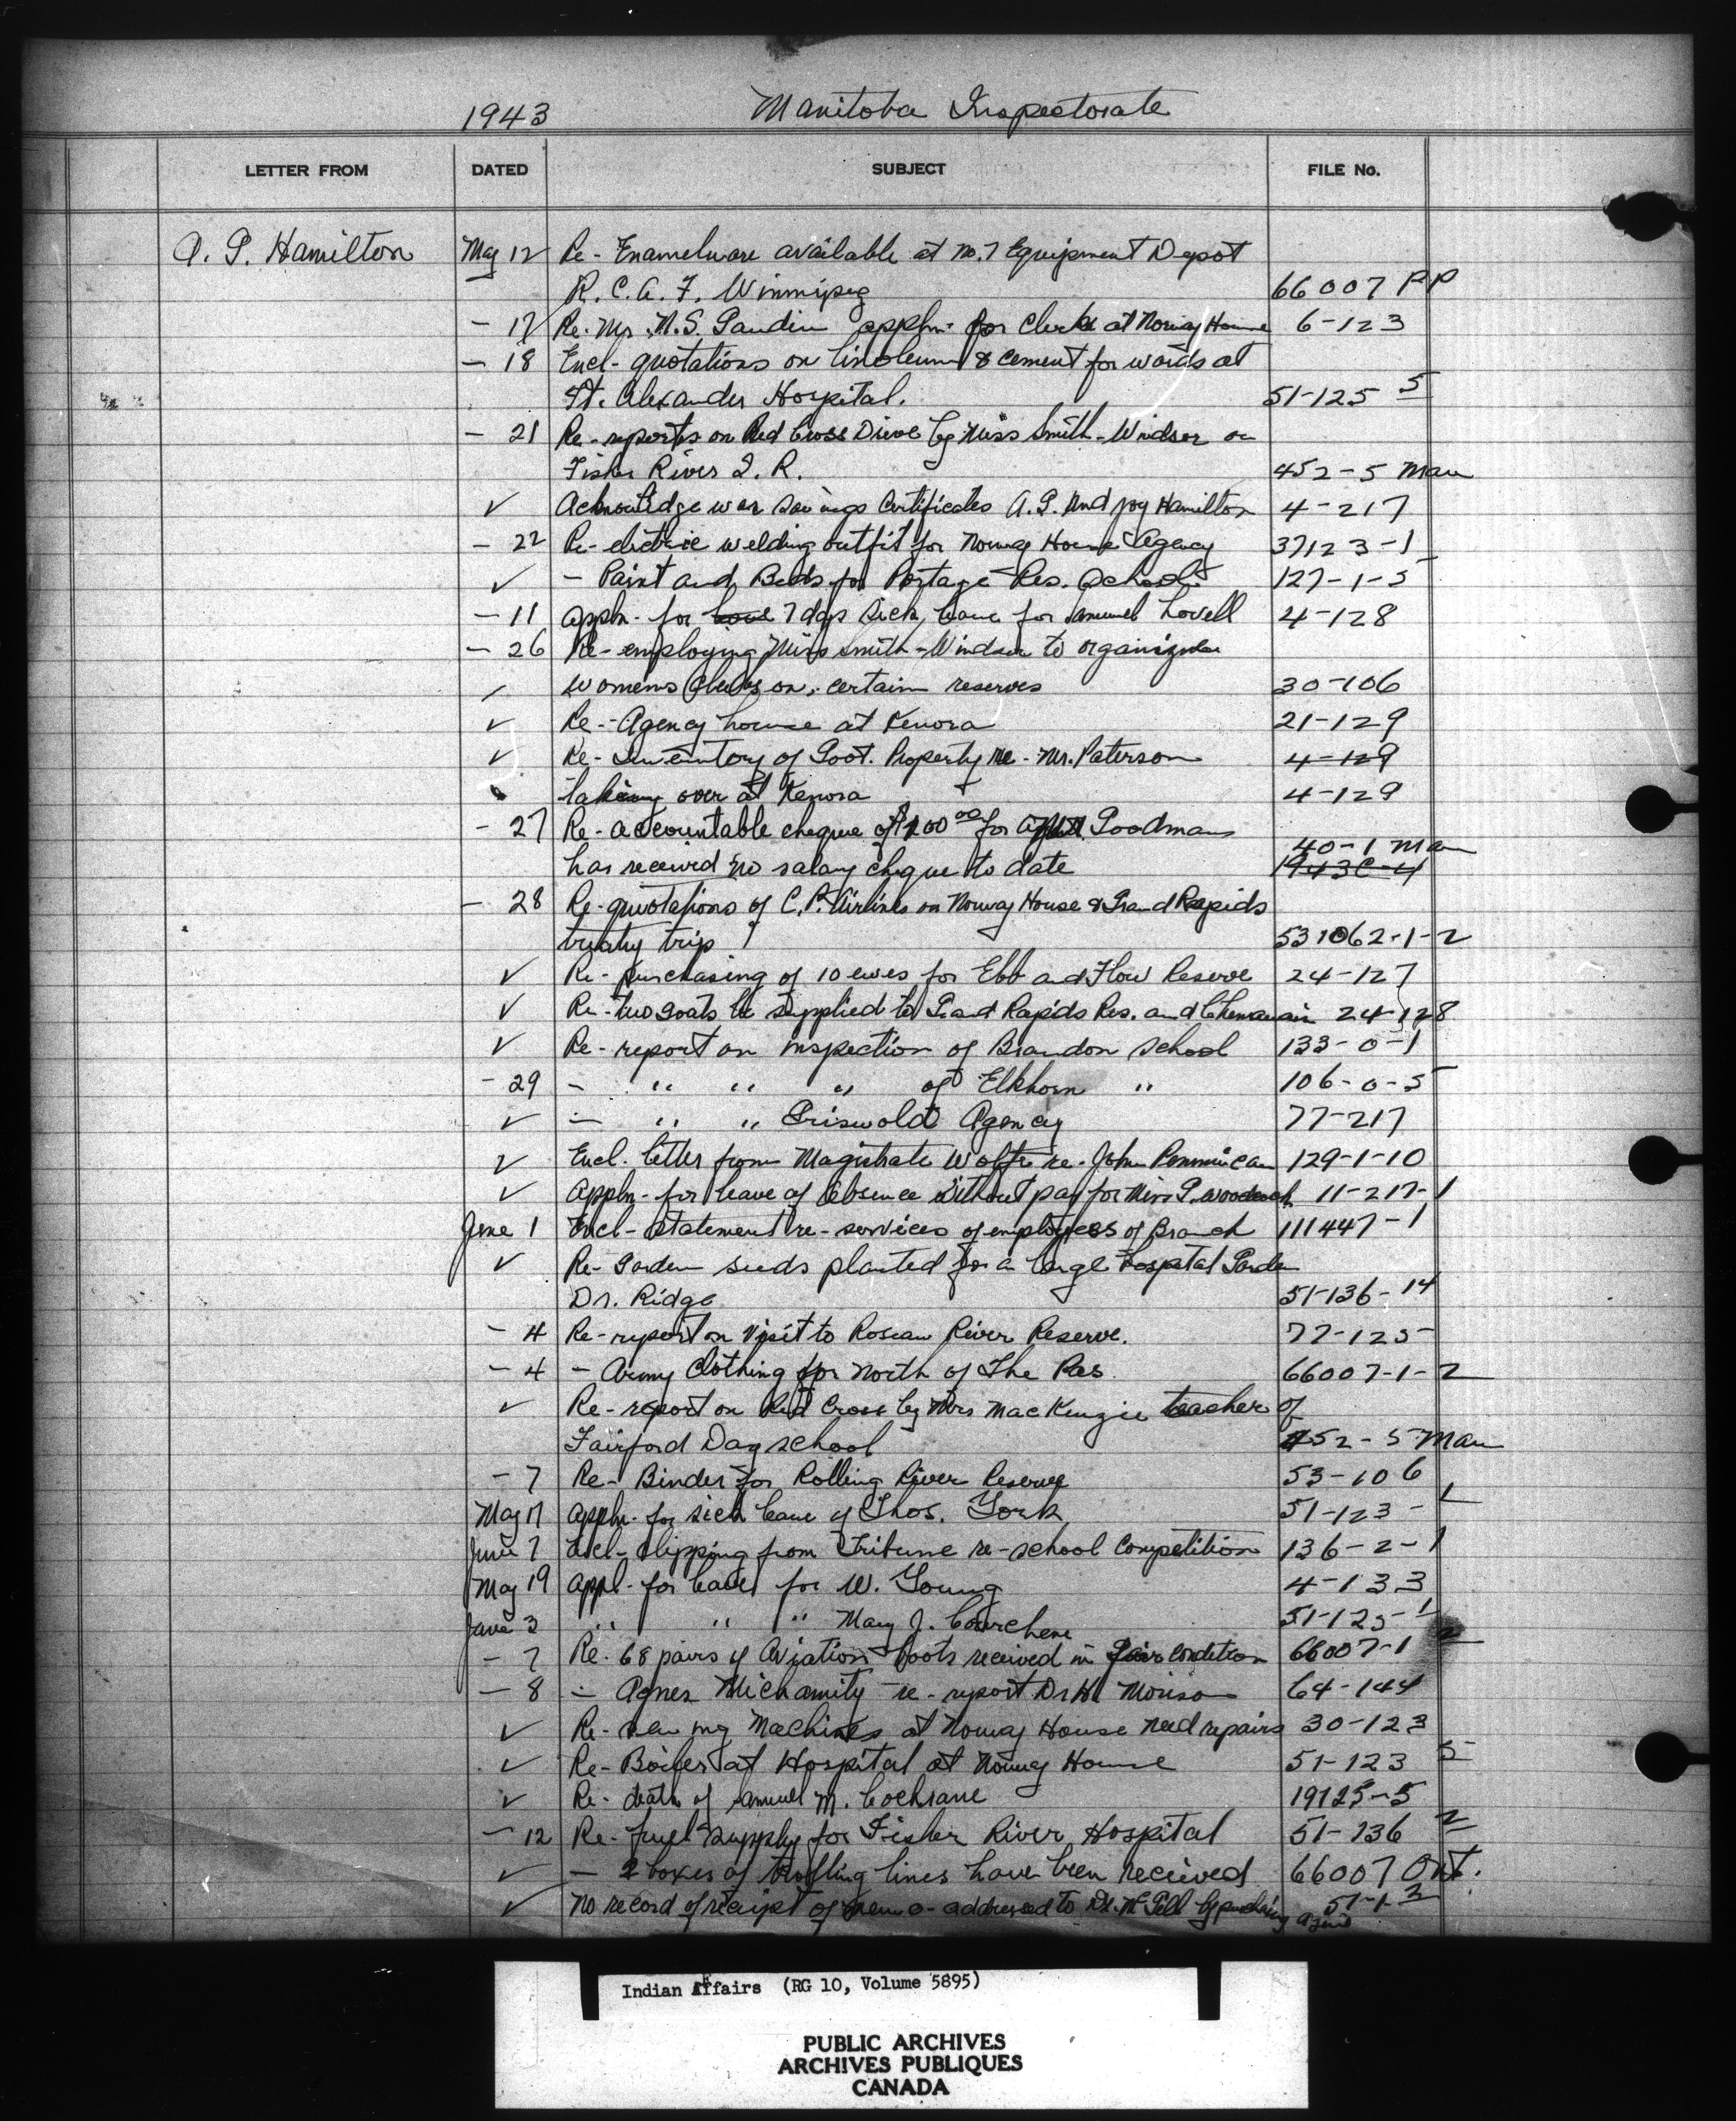 1943 Manitoba Inspectorate
LETTER FROM DATED SUBJECT FILE No.
A. G. Hamilton May 12 Re - Enamelware available at No. 7 Equipment Depot
R. C. A. F. Winnipeg 66007 PP
- 17 Re. Mr. N. S. Gaudin appln. for Clerk at Norway House 6-123
- 18 Encl - quotations on linoleum & cement for wards at
Ft. Alexander Hospital. 51-125 5
- 21 Re - reports on Red Cross Drive by Miss Smith-Windsor on
Fisher River I. R. 452-5 Man
✓ Acknowledge war savings Certificates A. G. and Joy Hamilton 4-217
- 22 Re - electric welding outfit for Norway House Agency 37123-1
✓ - Paint and Beds for Portage Res. School 127-1-5
- 11 appln - for 7 days sick leave for Samuel Lovell 4-128
- 26 Re - employing Miss Smith-Windsor to organize
womens Clubs on certain reserves 30-106
✓ Re - Agency house at Kenora 21-129
✓ Re - Inventory of Govt. Property re - Mr. Paterson 4-129
taking over at Kenora 4-129
- 27 Re - accountable cheque of $100 00 for Goodman
40-1 Man
has received no salary cheque to date
- 28 Re - quotations of C. P. Airlines on Norway House & Grand Rapids
treaty trip 531062-1-2
✓ Re - purchasing of 10 ewes for Ebb and Flow Reserve 24-127
✓ Re - two goats be supplied to Grand Rapids Res. and Chemawawin 24-128
✓ Re - report on inspection of Brandon School 133-0-1
- 29 - " " " of Elkhorn " 106-0-5
✓ - " " Griswold Agency 77-217
✓ Encl. letter from Magistrate Wolfe re - John Pemmican 129-1-10
✓ Appln - for leave of Absence without pay for Miss P. Woodcock 11-217-1
June 1 Encl - Statement re - services of employees of Branch 111447-1
✓ Re - Garden seeds planted for a large Hospital Garden
Dr. Ridge 51-136-14
- 4 Re - report on Visit to Roseau River Reserve. 77-125
- 4 - Army Clothing for North of The Pas 66007-1-2
✓ Re - report on Red Cross by Mrs MacKenzie teacher of
Fairford Day school 452-5 Man
- 7 Re - Binder for Rolling River Reserve 53-106
May 17 appln - for sick leave of Thos. York 51-123-1
June 7 Encl - Clipping from Tribune re - school Competition 136-2-1
May 19 appl - for leave for W. Young 4-133
June 3 " " " Mary J. Courchene 51-125-1
- 7 Re - 68 pairs of Aviation Boots received in fair condition 66007-1 2
- 8 - Agnes Michamity re - report Dr H. Morison 64-144
✓ Re - sewing Machines at Norway House need repairs 30-123
✓ Re - Boiler at Hospital at Norway House 51-123 5
✓ Re - death of Samuel M. Cochrane 19125-5
- 12 Re - fuel supply for Fisher River Hospital 51-136 2
✓ - 2 boxes of trolling lines have been received 66007 Ont.
✓ No record of receipt of memo - addressed to Dr. McGill by purchasing agent 51-1-3
Indian Affairs (RG 10, Volume 5895)
PUBLIC ARCHIVES
ARCHIVES PUBLIQUES
CANADA